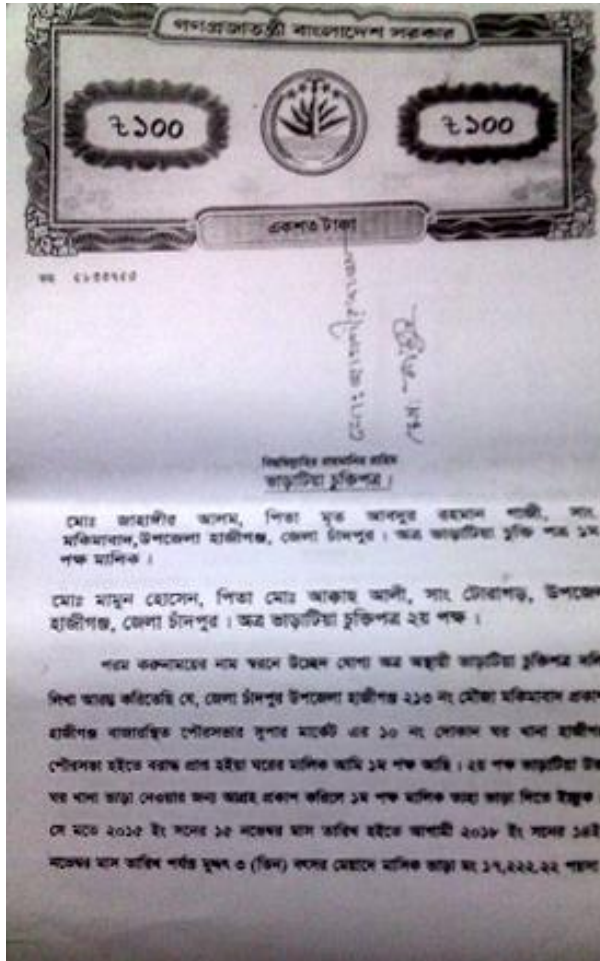 গণপ্রজাতন্ত্রী বাংলাদেশ সরকার
৳১০০ ৳১০০
একশত টাকা
বিসমিল্লাহির রাহমানির রাহিম
ভাড়াটিয়া চুক্তিপত্র।
মোঃ জাহাঙ্গীর আলম, পিতা মৃত আবদুর রহমান গাজী, সাং
মকিমাবাদ,উপজেলা হাজীগঞ্জ, জেলা চাঁদপুর । অত্র ভাড়াটিয়া চুক্তি পত্র ১ম
পক্ষ মালিক ।
মোঃ মামুন হোসেন, পিতা মোঃ আক্কাছ আলী, সাং টোরাগড়, উপজেল
হাজীগঞ্জ, জেলা চাঁদপুর । অত্র ভাড়াটিয়া চুক্তিপত্র ২য় পক্ষ ।
পরম করুনাময়ের নাম স্বরনে উল্লেখ যোগ্য অত্র অস্থায়ী ভাড়াটিয়া চুক্তিপত্র দলি
লিখা আরম্ভ করিতেছি যে, জেলা চাঁদপুর উপজেলা হাজীগঞ্জ ২১৩ নং মৌজা মকিমাবাদ প্রকাশ
হাজীগঞ্জ বাজারস্থিত পৌরসভার সুপার মার্কেট এর ১০ নং দোকান ঘর খানা হাজীগ
পৌরসভা হইতে বরাদ্দ প্রাপ্ত হইয়া ঘরের মালিক আমি ১ম পক্ষ আছি । ২য় পক্ষ ভাড়াটিয়া উক্ত
ঘর খানা ভাড়া নেওয়ার জন্য আগ্রহ প্রকাশ করিলে ১ম পক্ষ মালিক তাহা ভাড়া দিতে ইচ্ছুক ।
সে মতে ২০১৫ ইং সনের ১৫ নভেম্বর মাস তারিখ হইতে আগামী ২০১৮ ইং সনের ১৪ই
নভেম্বর মাস তারিখ পর্যন্ত মুদ্দৎ ৩ (তিন) বৎসর মেয়াদে মাসিক ভাড়া মং ১৭,২২২.২২ পয়সা